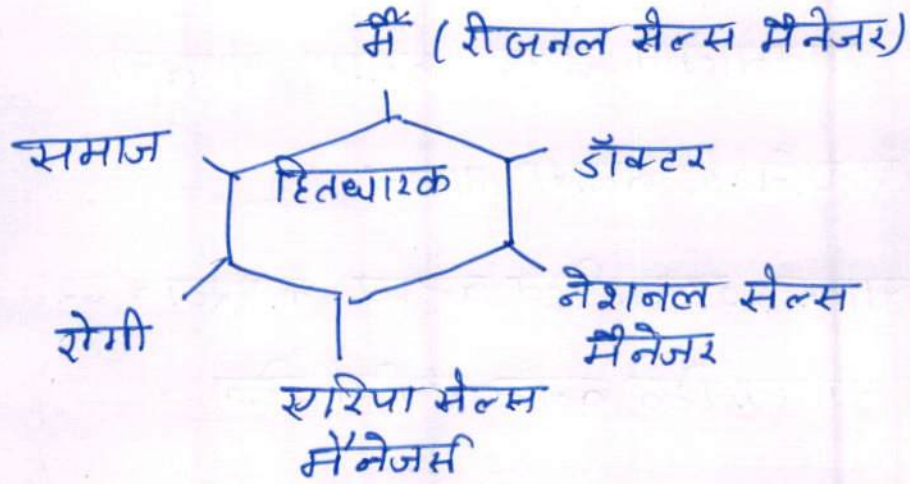 मैं (रीजनल सेल्स मैनेजर)
समाज
हितधारक
डॉक्टर
रोगी
नेशनल सेल्स
मैनेजर
एरिया सेल्स
मैनेजर्स